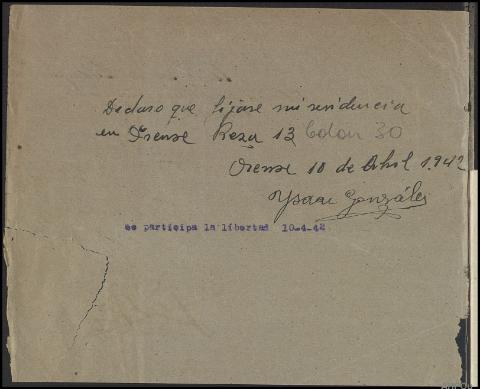 Declaro que fijare mi residencia
en Orense Reza 13 Colon 30
Orense 10 de Abril 1.942
Ysaac González
se participa la libertad 10-4-42